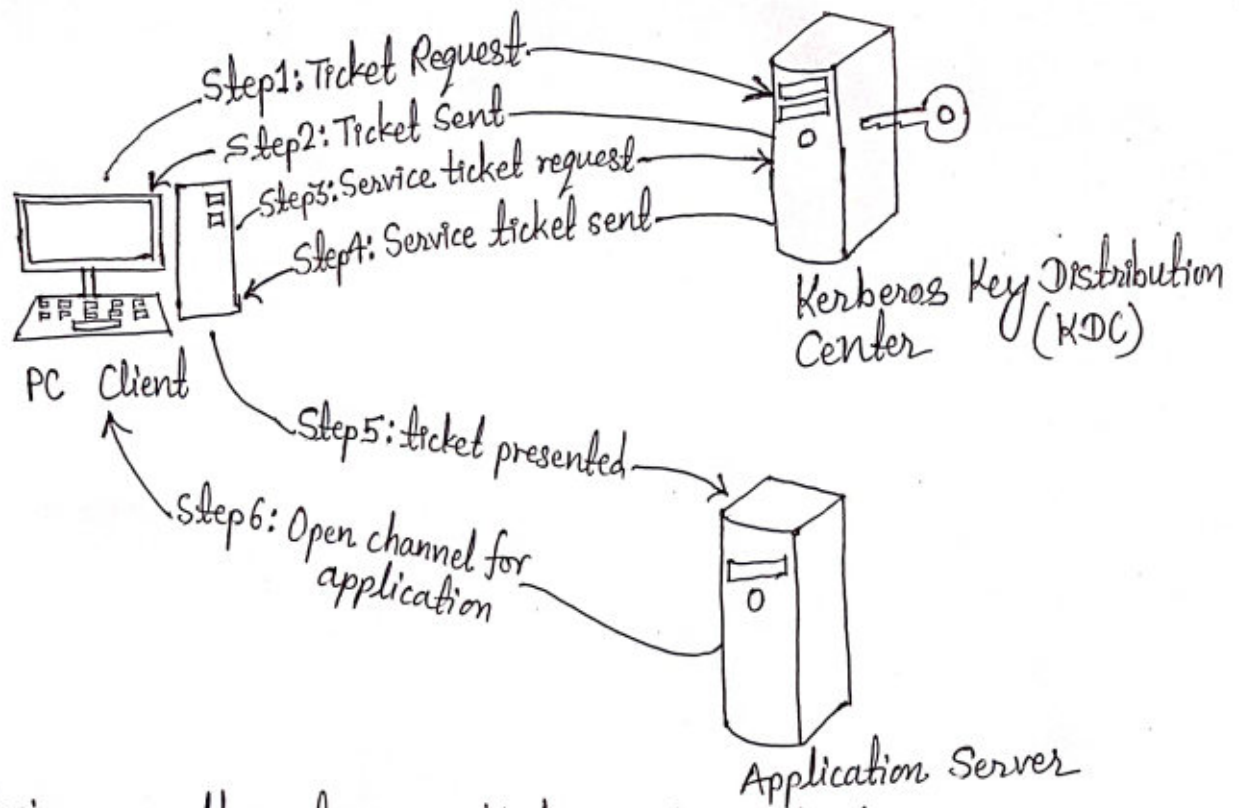 Step1: Ticket Request
Step2: Ticket Sent
Step3: Service ticket request
Step4: Service ticket sent
Kerberos Key Distribution
Center (KDC)
PC Client
Step5: ticket presented
Step6: Open channel for
application
Application Server